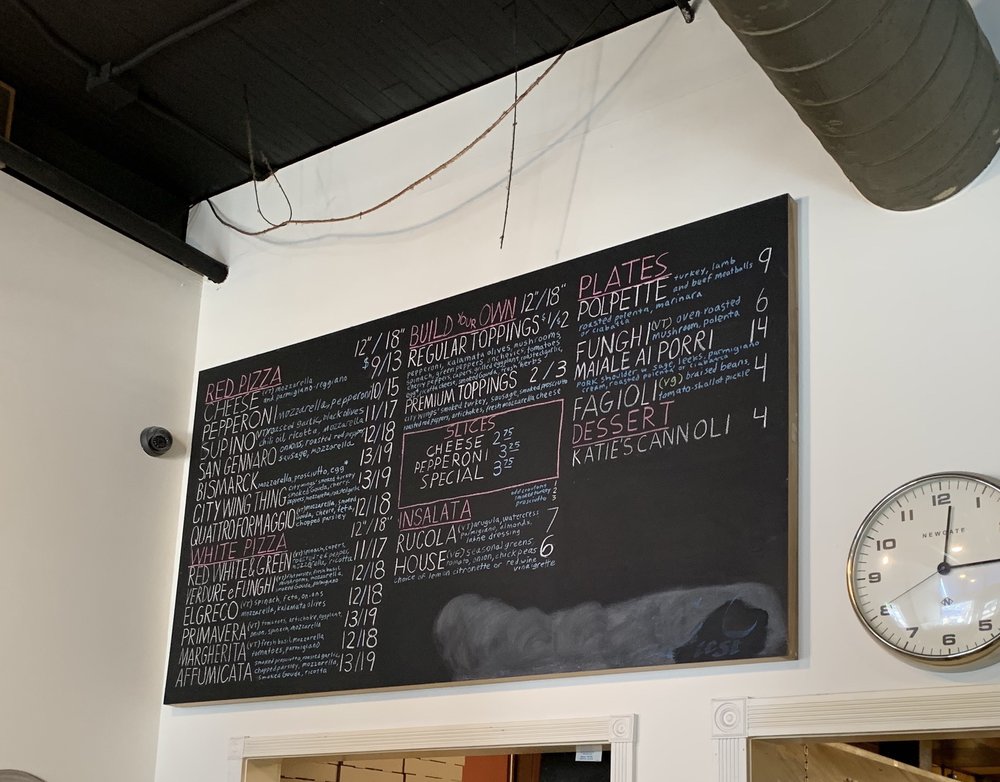 12"/18"
RED PIZZA
CHEESE (VT) mozzarella and parmigiano-reggiano $9/13
PEPPERONI mozzarella, pepperoni 10/15
SUPINO roasted garlic, black olives chili oil, ricotta, mozzarella 11/17
SAN GENNARO onions, roasted red peppers sausage, mozzarella 12/18
BISMARCK mozzarella, prosciutto, egg* 13/19
CITY WING THING city wings' smoked turkey smoked Gouda, cherry peppers, mozzarella, roasted garlic 13/19
QUATTRO FORMAGGIO (VT) mozzarella, smoked Gouda, cheese, feta, chopped parsley 12/18
WHITE PIZZA 12"/18"
RED WHITE & GREEN (VT) spinach, mozzarella, ricotta 11/17
VERDURE e FUNGHI mushrooms, mozzarella smoked Gouda, parmigiano 12/18
EL GRECO (VT) spinach, feta, onions mozzarella, kalamata olives 12/18
PRIMAVERA (VT) tomatoes, artichoke, eggplant, onion, spinach, mozzarella 13/19
MARGHERITA (VT) fresh basil, mozzarella tomatoes, parmigiano 12/18
AFFUMICATA smoked prosciutto, roasted garlic, chopped parsley, mozzarella, smoked Gouda, ricotta 13/19
BUILD YOUR OWN 12"/18"
REGULAR TOPPINGS $1/$2
pepperoni, kalamata olives, mushrooms
spinach, green peppers, anchovies, tomatoes
cherry peppers, onions, grilled eggplant, roasted garlic,
egg*, feta cheese, smoked Gouda, fresh herbs
PREMIUM TOPPINGS 2/3
city wings' smoked turkey, sausage, smoked prosciutto
roasted red peppers, artichokes, fresh mozzarella cheese
SLICES
CHEESE 2.75
PEPPERONI 3.25
SPECIAL 3.75
add croutons 1
smoked turkey 2
prosciutto 3
INSALATA
RUCOLA (VT) arugula, watercress parmigiano, almonds, lemon dressing 7
HOUSE (VG) seasonal greens, tomato, onion, chick peas 6
choice of lemon citronette or red wine vinaigrette
PLATES
POLPETTE turkey, lamb and beef meatballs 9
roasted polenta, marinara
or ciabatta
FUNGHI (VT) oven-roasted mushroom, polenta 6
MAIALE AI PORRI 14
pork shoulder w. sage, leeks, parmigiano
cream, roasted polenta or ciabatta
FAGIOLI (VG) braised beans, tomato-shallot pickle 4
DESSERT
KATIE'S CANNOLI 4
NEWGATE
12
11
10
9
8
7
6
5
N